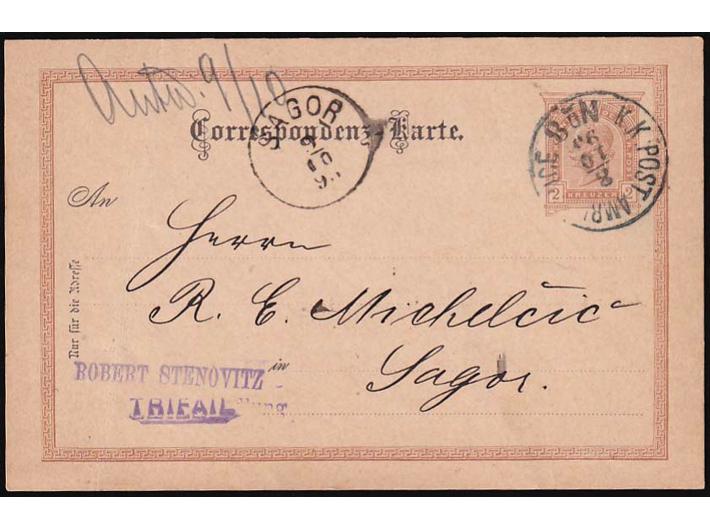 Antw. 9/10
SAGOR
9/10
Correspondenz-Karte.
K.K. POST AMBULANCE
8/10
2 KREUZER 2
An
Herrn
R. E. Michelčič
Nur für die Adresse
in
Sagor.
ROBERT STENOVITZ
TRIFAIL